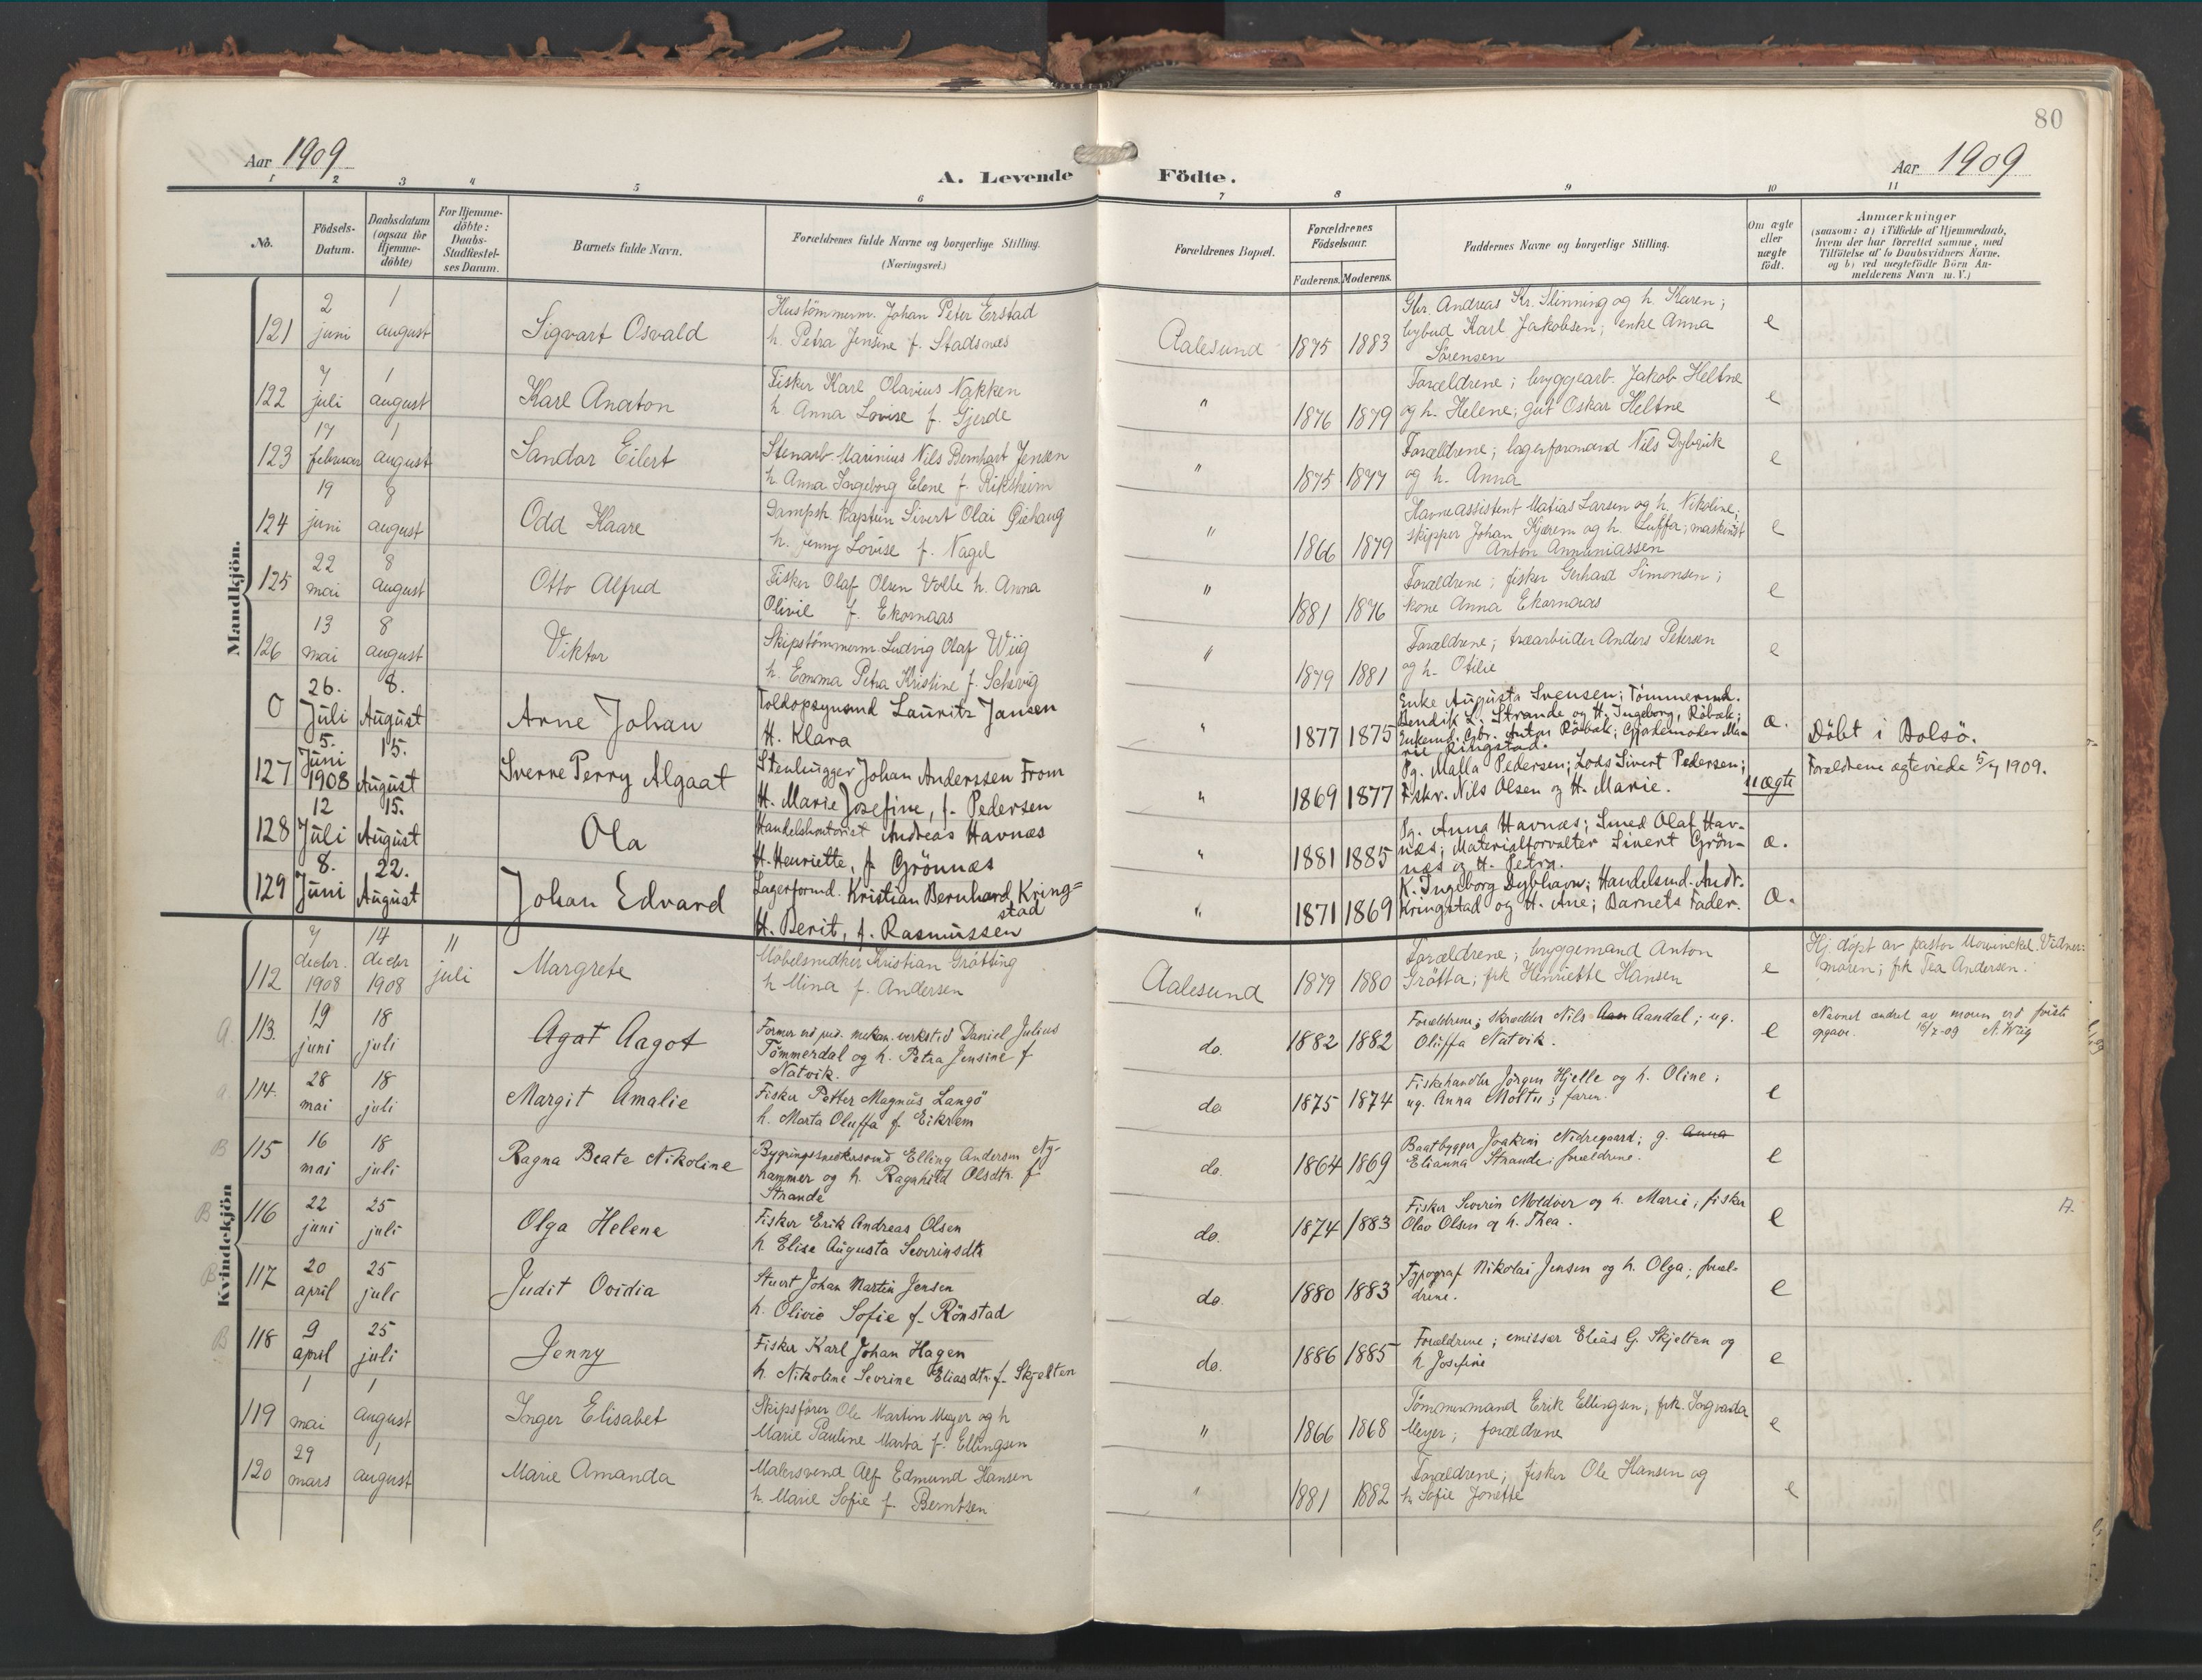 80
Aar 1909
Aar 1909
A. Levende Födte.
1 2 3 4 5 6 7 8 9 10 11
No.
Födsels-Datum.
Daabsdatum (ogsaa for Hjemme-döbte)
For Hjemme-döbte: Daabs-Stadfæstel-ses Datum.
Barnets fulde Navn.
Forældrenes fulde Navne og borgerlige Stilling.
(Næringsvei.)
Forældrenes Bopæl.
Forældrenes Födselsaar.
Faderens. Moderens.
Faddernes Navne og borgerlige Stilling.
Om ægte eller uægte födt.
Anmærkninger
(saasom: a) i Tilfælde af Hjemmedaab, hvem der har forrettet samme, med Tilföielse af to Daabsvidners Navne, og b) ved uægtefödte Börn Anmelderens Navn m. V.)
Mandkjön.
121 2 juni 1 august Sigvart Osvald
Hustömmerm. Johan Peter Erstad
h. Petra Jensine f. Stadsnæs
Aalesund 1875 1883
Gbr. Andreas Kr. Slinning og h. Karen;
bybud Karl Jakobsen; enke Anna
Sörensen
e
122 7 juli 1 august Karl Anaton
Fisker Karl Olavius Nakken
h. Anna Lovise f. Gjerde
" 1876 1879
Forældrene; bryggearb. Jakob Heltne
og h. Helene; gut Oskar Heltne
e
123 17 februar 1 august Sandor Eilert
Stenarb Marinius Nils Bernhart Jensen
h. Anna Ingeborg Elene f. Riksheim
" 1875 1877
Forældrene; lagerformand Nils Dybvik
og h. Anna
e
124 19 juni 8 august Odd Kaare
Dampsk. kaptein Sivert Olai Giehaug
h. Jenny Lovise f. Nagel
" 1866 1879
Havneassistent Matias Larsen og h. Nikoline;
skipper Johan Kjærem og h. Luffa; maskinist
Anton Ammuniassen
e
125 22 mai 8 august Otto Alfred
Fisker Olaf Olsen Volle h. Anna
Olivie f. Ekornaas
" 1881 1876
Forældrene; fisker Gerhard Simonsen;
kone Anna Ekornaas
e
126 13 mai 8 august Viktor
Skipstömmerm. Ludvig Olaf Wiig
h. Emma Petra Kristine f. Schevig
" 1879 1881
Forældrene; træarbeider Anders Petersen
og h. Otilie
e
0 26. Juli 8. August Arne Johan
Toldopsynsmd Lauritz Jansen
H. Klara
" 1877 1875
Enke Augusta Svensen; Tömmermd.
Bendik L. Strande og H. Ingeborg, Röbæk;
Enkemd. Gbr. Anton Röbæk; Gjordemoder Ma-
rie Ringstad.
æ. Döbt i Bolsö.
127 5. Juni 1908 15. August Sverre Perry Algaat
Stenhugger Johan Anderssen From
H. Marie Josefine, f. Pedersen
" 1869 1877
Pg. Malla Pedersen; Lods Sivert Pedersen;
Fiskr. Nils Olsen og H. Marie.
uægte Forældrene ægteviede 5/7 1909.
128 12 Juli 15. August Ola
Handelskontorist Andreas Havnæs
H. Henriette, f. Grönnæs
" 1881 1885
Pg. Anna Havnæs; Smed Olaf Hav-
næs; Materialforvalter Sivert Grön-
næs og H. Petra.
æ.
129 8. Juni 22. August Johan Edvard
Lagerformd. Kristian Bernhard Kring=
stad
H. Berit, f. Rasmussen
" 1871 1869
K. Ingeborg Dybhavn; Handelsmd. Andr.
Kringstad og H. Ane; Barnets Fader.
æ.
Kvindekjön
112 7 decbr. 1908 14 decbr 1908 11 juli Margrete
Möbelsnedker Kristian Grötting
h Mina f. Andersen
Aalesund 1879 1880
Forældrene; bryggemand Anton
Grötta; frk Henriette Hansen
e
Hj. döpt av pastor Mowinckel. Vidner:
moren; frk Tea Andersen.
113. 19 juni 18 juli Agat Aagot
Former ved jul. mekan. verksted Daniel Julius
Tömmerdal og h. Petra Jensine f
Natvik.
do. 1882 1882
Forældrene; skrædder Nils Aan Aandal; ug.
Oluffa Natvik.
e
Navnet ændret av moren ved förste
opgave. 16/7-09 A. Wiig
114. 28 mai 18 juli Margit Amalie
Fisker Petter Magnus Langö
h. Marta Oluffa f. Eikrem
do 1875 1874
Fiskehandler Jörgen Hjelle og h. Oline;
ug. Anna Moltu; faren.
e
B 115 16 mai 18 juli Ragna Beate Nikoline
Bygningssnedkersvend Elling Andersen Ny-
hammer og h. Ragnhild Olsdtr. f
Strande
do. 1864 1869
Baatbygger Joakim Nedregaard; g. Anna
Elianna Strande; forældrene.
e
B 116 22 juni 25 juli Olga Helene
Fisker Erik Andreas Olsen
h. Elise Augusta Severinsdtr
do. 1874 1883
Fisker Severin Moldver og h. Marie, fisker
Olav Olsen og h. Thea.
e
B 117 20 april 25 juli Judit Ovidia
Stuert Johan Martin Jensen
h. Olivie Sofie f. Rönstad
do. 1880 1883
Typograf Nikolai Jensen og h. Olga; foræl-
drene.
e
B 118 9 april 25 juli Jenny
Fisker Karl Johan Hagen
h. Nikoline Severine Eliasdtr. f. Skjelten
do. 1886 1885
Forældrene; emissær Elias G. Skjelten og
h Josefine
e
119 1 mai 1 august Inger Elisabet
Skipsförer Ole Martin Meyer og h
Marie Pauline Marta f. Ellingsen
" 1866 1868
Tömmermand Erik Ellingsen, frk. Ingvarda
Meyer; forældrene
e
120 29 mars 1 august Marie Amanda
Malersvend Alf Edmund Hansen
h. Marie Sofie f. Berntsen
" 1881 1882
Forældrene; fisker Ole Hansen og
h. Sofie Jonette
e